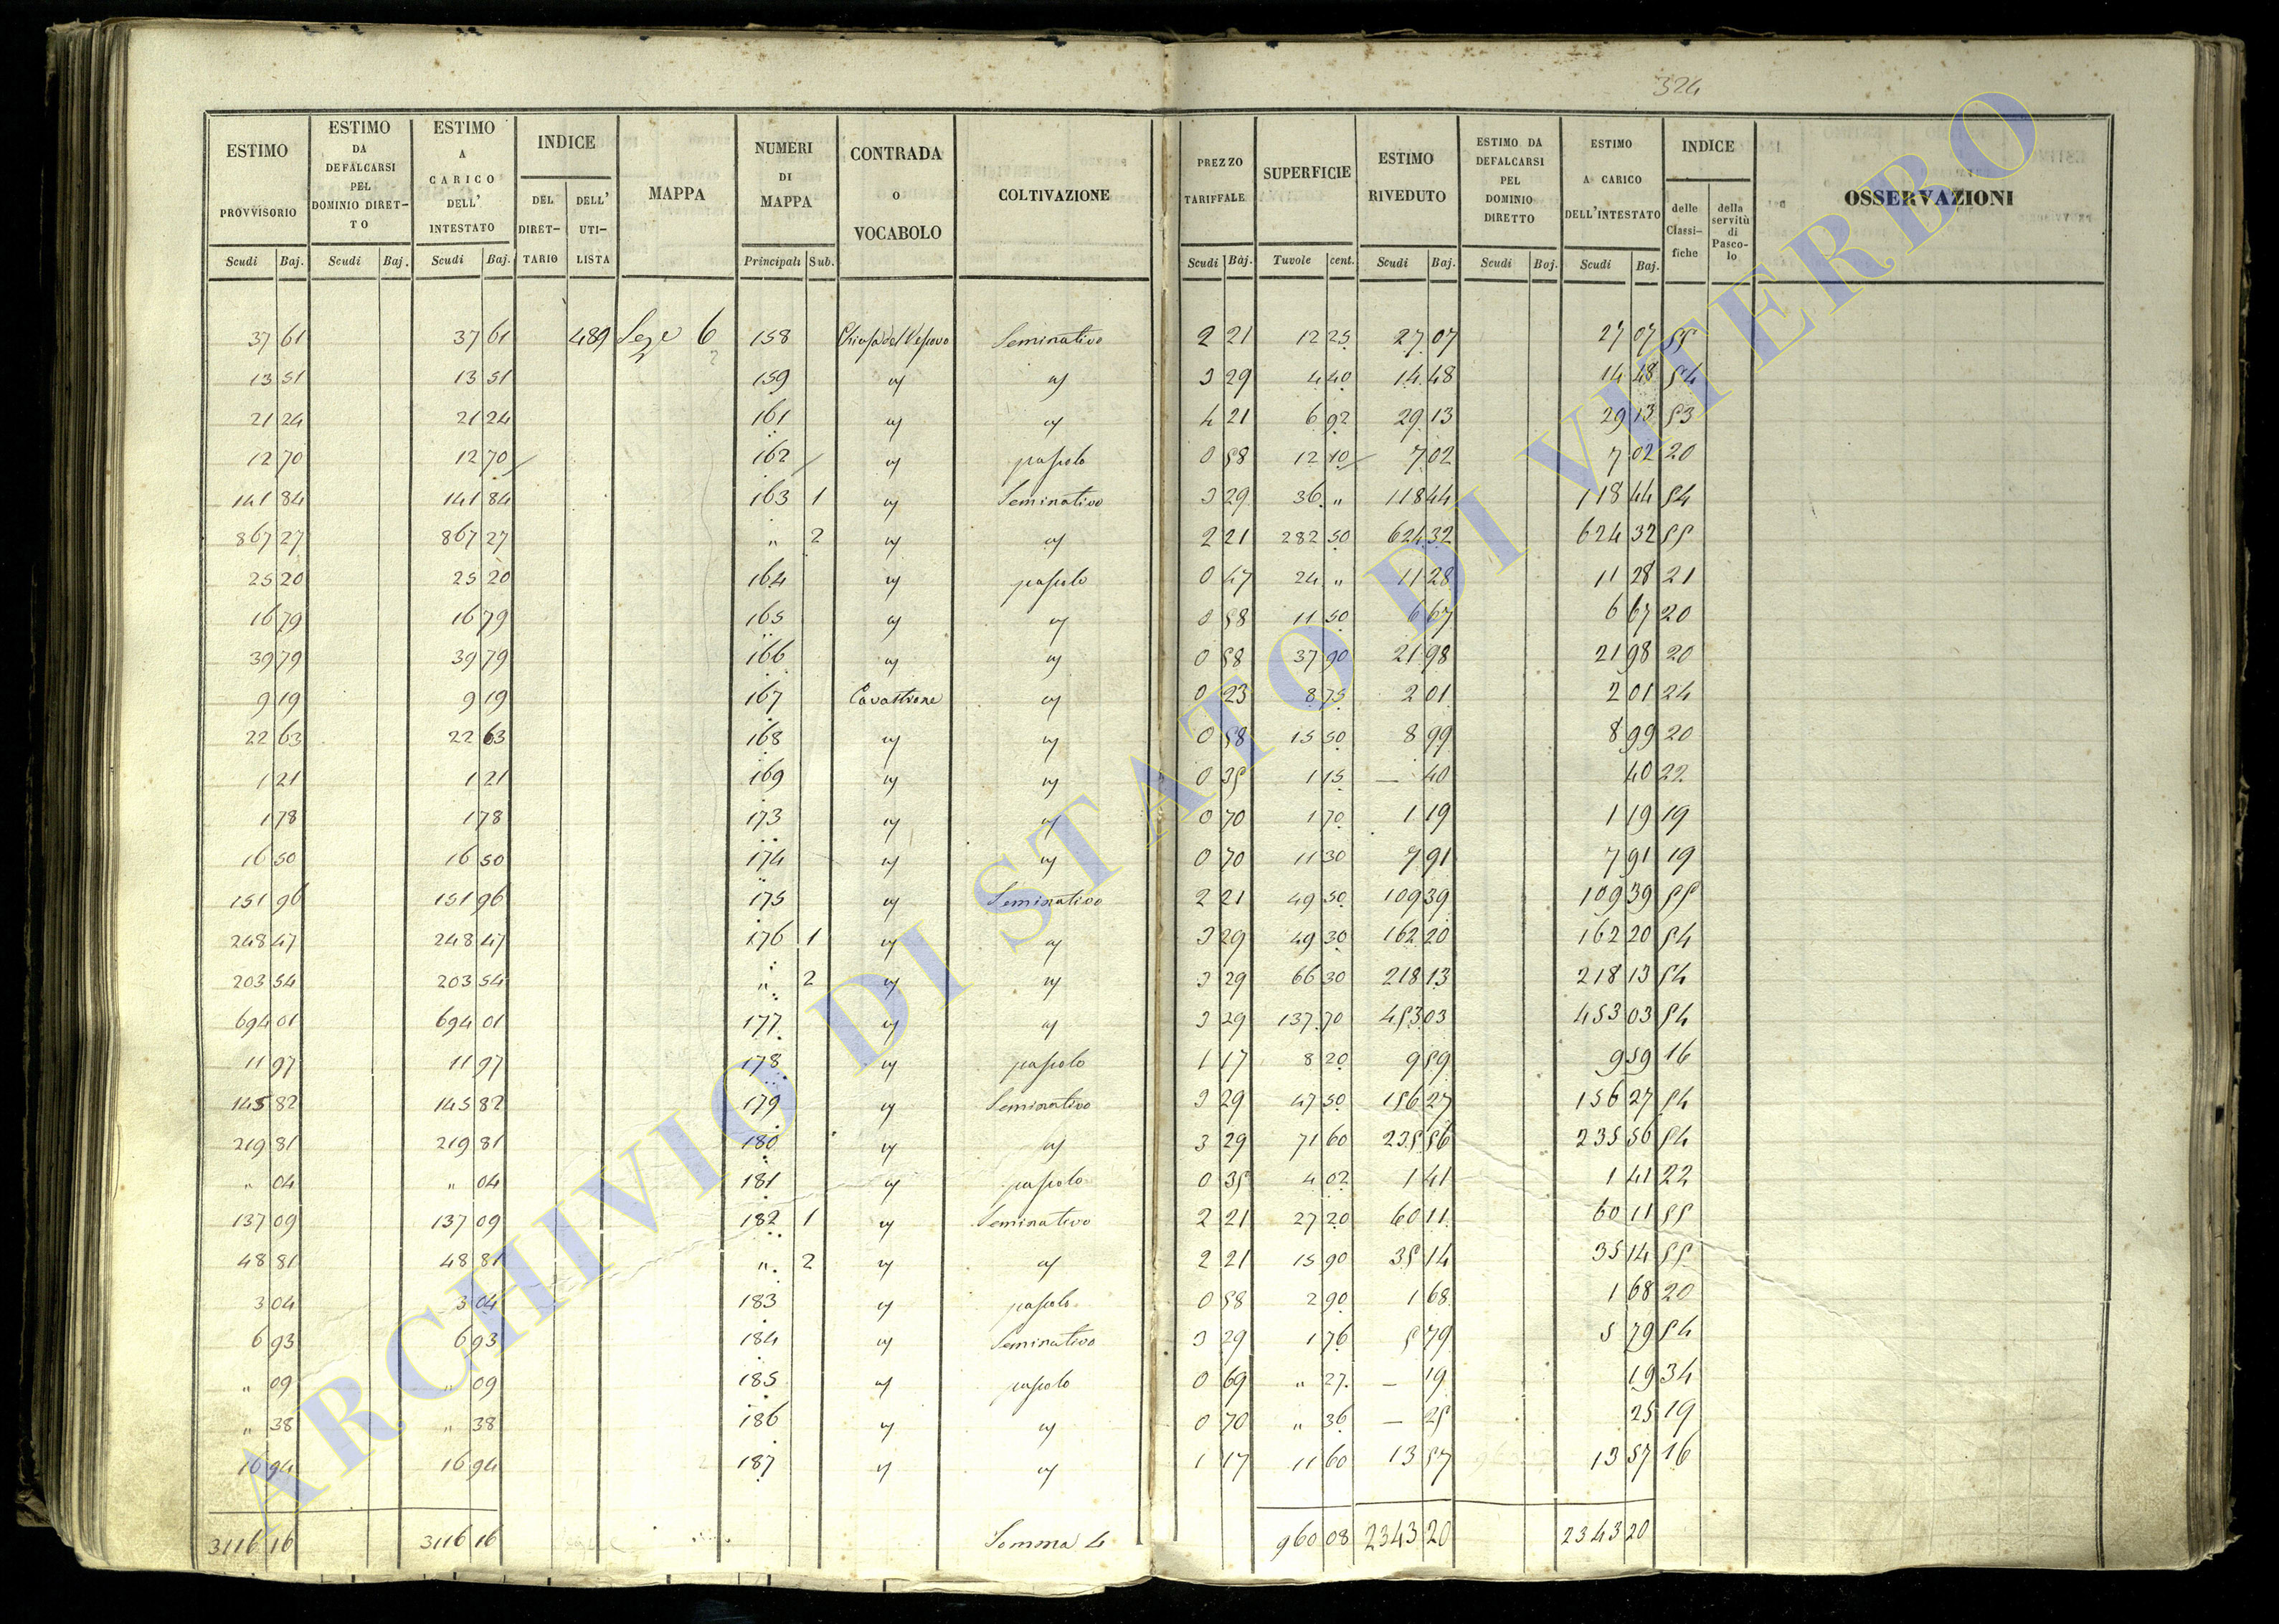 324
ESTIMO PROVVISORIO Scudi Baj.
ESTIMO DA DEFALCARSI PEL DOMINIO DIRETTO Scudi Baj.
ESTIMO A CARICO DELL' INTESTATO Scudi Baj.
INDICE DEL DIRETTARIO DELL' UTILISTA
MAPPA
NUMERI DI MAPPA Principali Sub.
CONTRADA O VOCABOLO
COLTIVAZIONE
PREZZO TARIFFALE Scudi Baj.
SUPERFICIE Tavole cent.
ESTIMO RIVEDUTO Scudi Baj.
ESTIMO DA DEFALCARSI PEL DOMINIO DIRETTO Scudi Baj.
ESTIMO A CARICO DELL'INTESTATO Scudi Baj.
INDICE delle Classifiche della servitù di Pascolo
OSSERVAZIONI
37 61 37 61 489 Sezze 6 158 Chiusa del Vescovo Seminativo 2 21 12 25 27 07 27 07 55
13 51 13 51 159 " " 3 29 4 40 14 48 14 48 54
21 24 21 24 161 " " 4 21 6 92 29 13 29 13 53
12 70 12 70 162 " pascolo 0 58 12 10 7 02 7 02 20
141 84 141 84 163 1 " Seminativo 3 29 36 " 118 44 118 44 54
867 27 867 27 " 2 " " 2 21 282 50 624 32 624 32 55
25 20 25 20 164 " pascolo 0 47 24 " 11 28 11 28 21
16 79 16 79 165 " " 0 58 11 50 6 67 6 67 20
39 79 39 79 166 " " 0 58 37 90 21 98 21 98 20
9 19 9 19 167 Cavastrone " 0 23 8 75 2 01 2 01 24
22 63 22 63 168 " " 0 58 15 50 8 99 8 99 20
1 21 1 21 169 " " 0 35 1 15 — 40 40 22
1 78 1 78 173 " " 0 70 1 70 1 19 1 19 19
16 50 16 50 174 " " 0 70 11 30 7 91 7 91 19
151 96 151 96 175 " Seminativo 2 21 49 50 109 39 109 39 55
248 47 248 47 176 1 " " 3 29 49 30 162 20 162 20 54
203 54 203 54 " 2 " " 3 29 66 30 218 13 218 13 54
694 01 694 01 177 " " 3 29 137 70 453 03 453 03 54
11 97 11 97 178 " pascolo 1 17 8 20 9 59 9 59 16
145 82 145 82 179 " Seminativo 3 29 47 50 156 27 156 27 54
219 81 219 81 180 " " 3 29 71 60 235 56 235 56 54
" 04 " 04 181 " pascolo 0 35 4 02 1 41 1 41 22
137 09 137 09 182 1 " Seminativo 2 21 27 20 60 11 60 11 55
48 81 48 81 " 2 " " 2 21 15 90 35 14 35 14 55
3 04 3 04 183 " pascolo 0 58 2 90 1 68 1 68 20
6 93 6 93 184 " Seminativo 3 29 1 76 5 79 5 79 54
" 09 " 09 185 " pascolo 0 69 " 27 — 19 19 34
" 38 " 38 186 " " 0 70 " 36 — 25 25 19
16 94 16 94 187 " " 1 17 11 60 13 57 13 57 16
3116 16 3116 16 Somma 4 960 08 2343 20 2343 20
ARCHIVIO DI STATO DI VITERBO